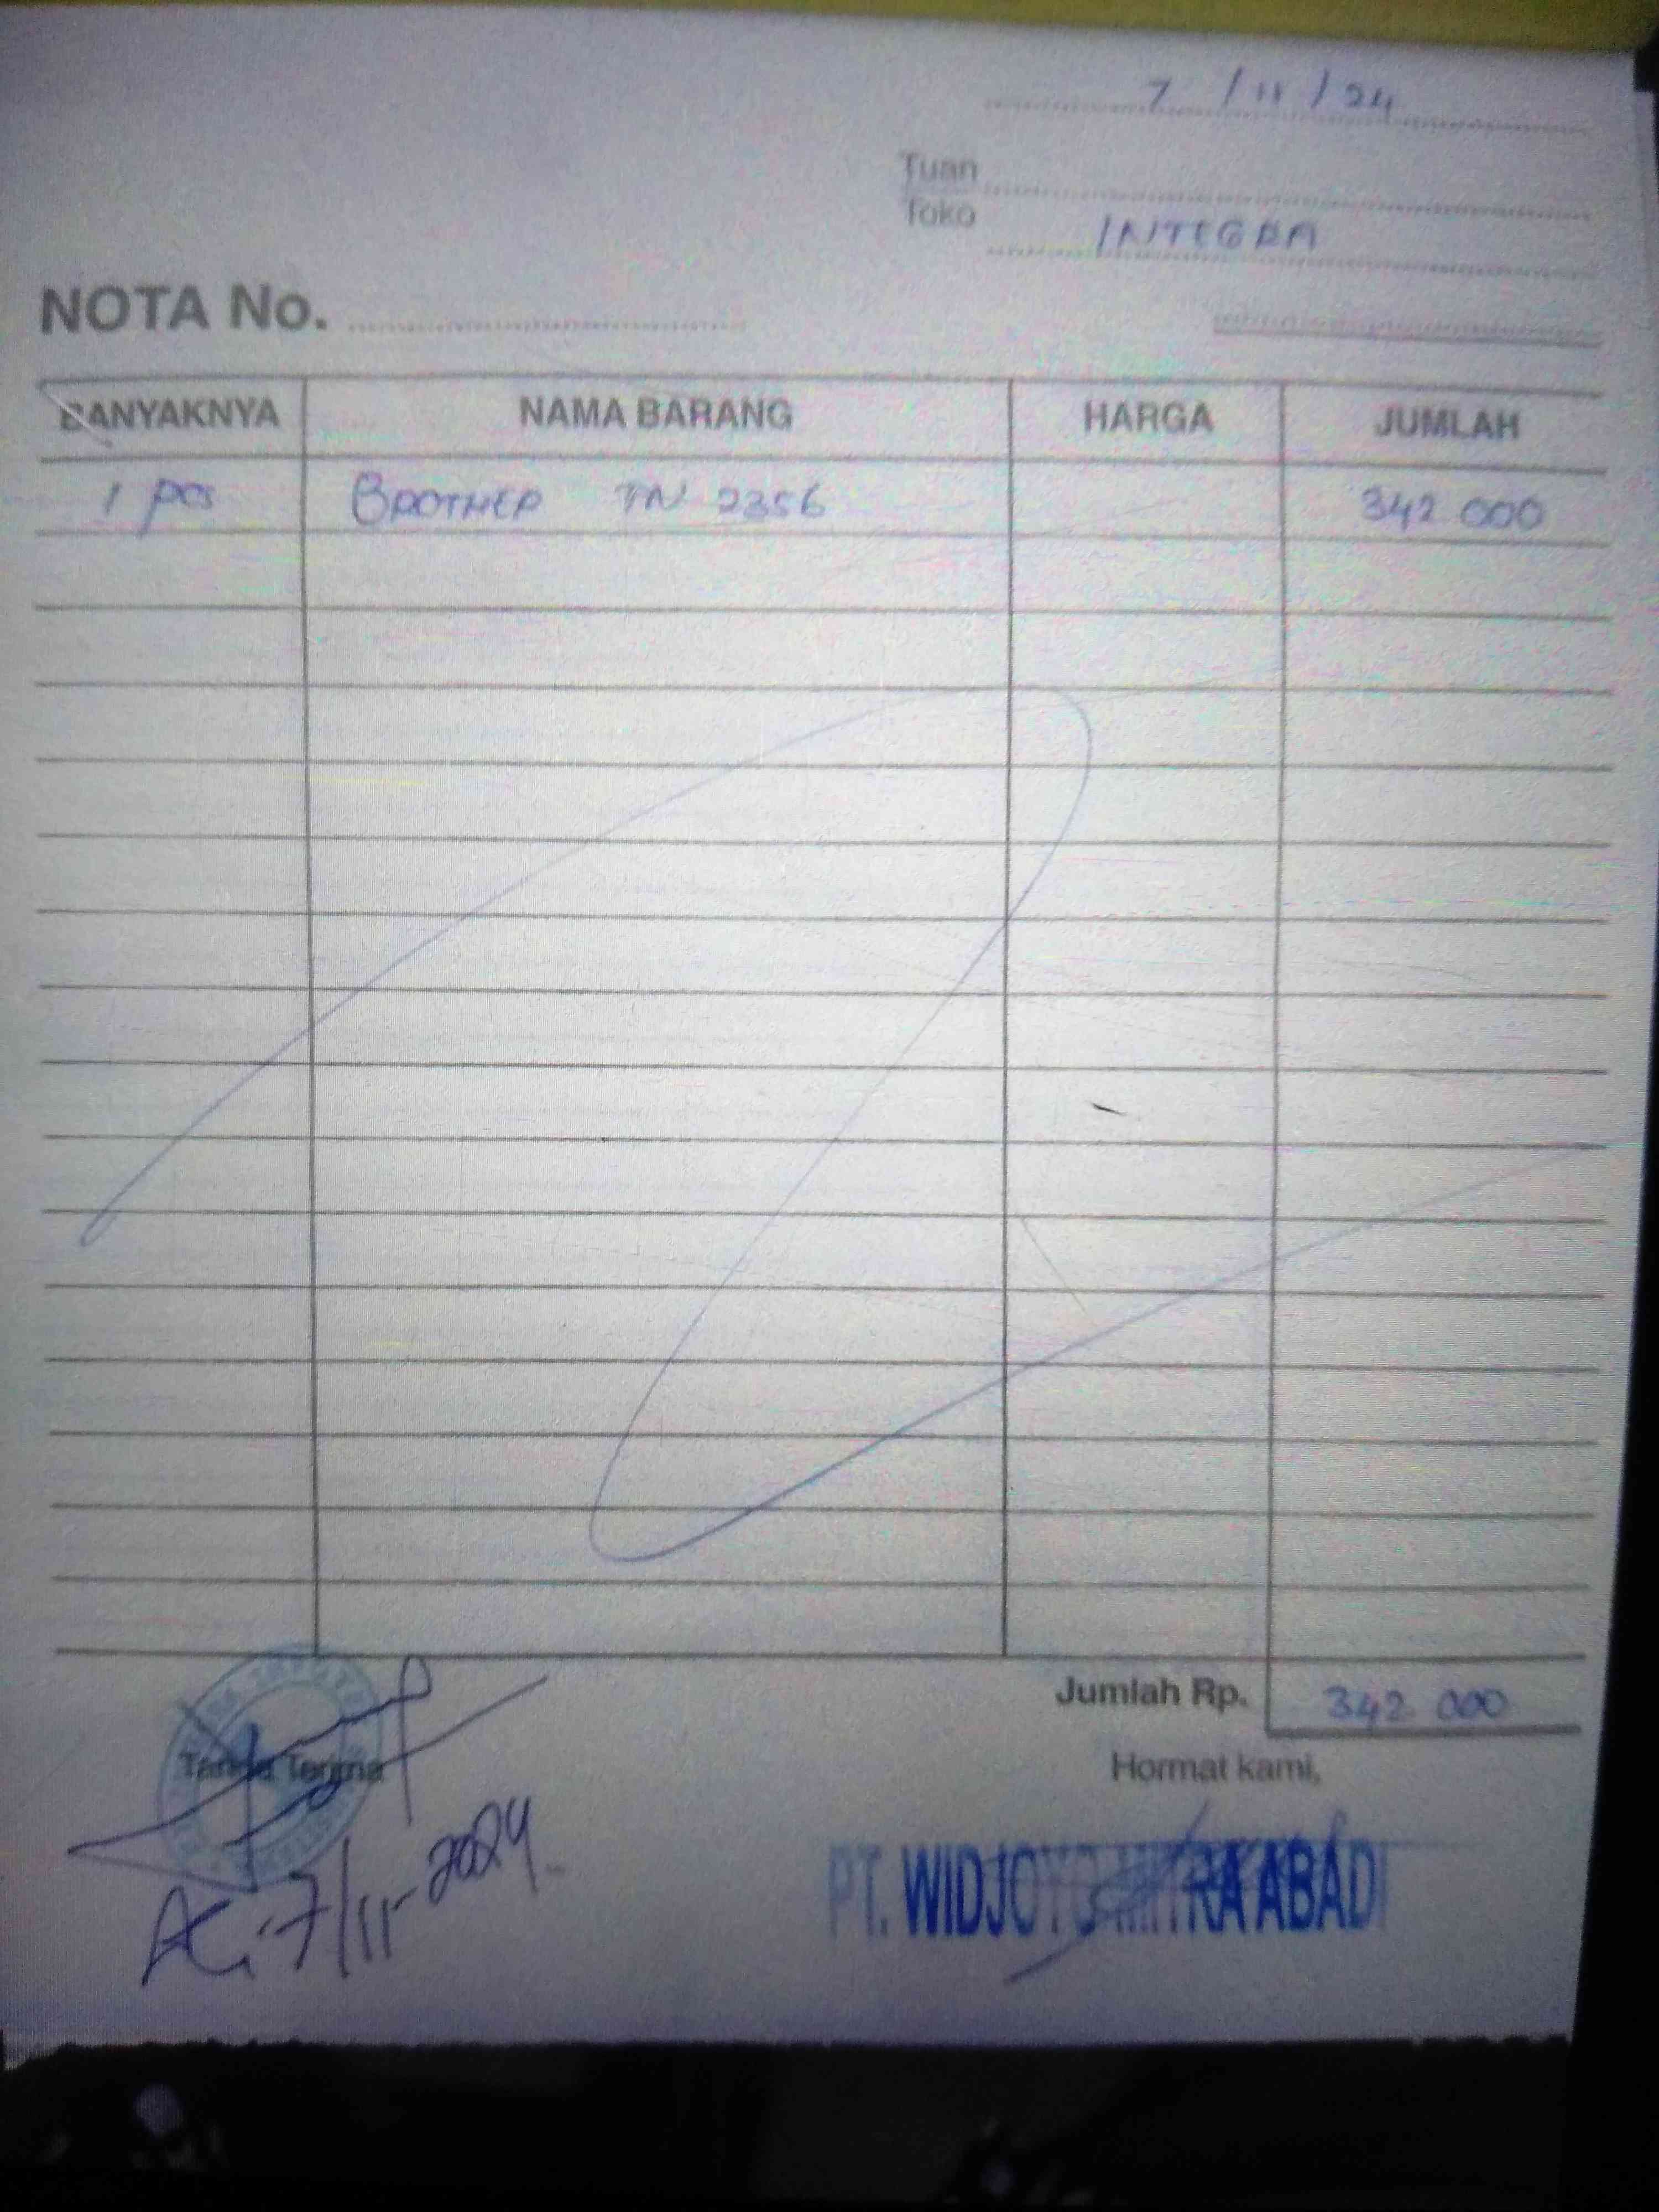 7 / 11 / 24
Tuan
Toko INTEGRA
NOTA No.
BANYAKNYA NAMA BARANG HARGA JUMLAH
1 pcs BROTHER TN 2356 342 000
Jumlah Rp. 342 000
Tanda Terima Hormat kami,
7/11-2024
PT. WIDJOYO MITRA ABADI